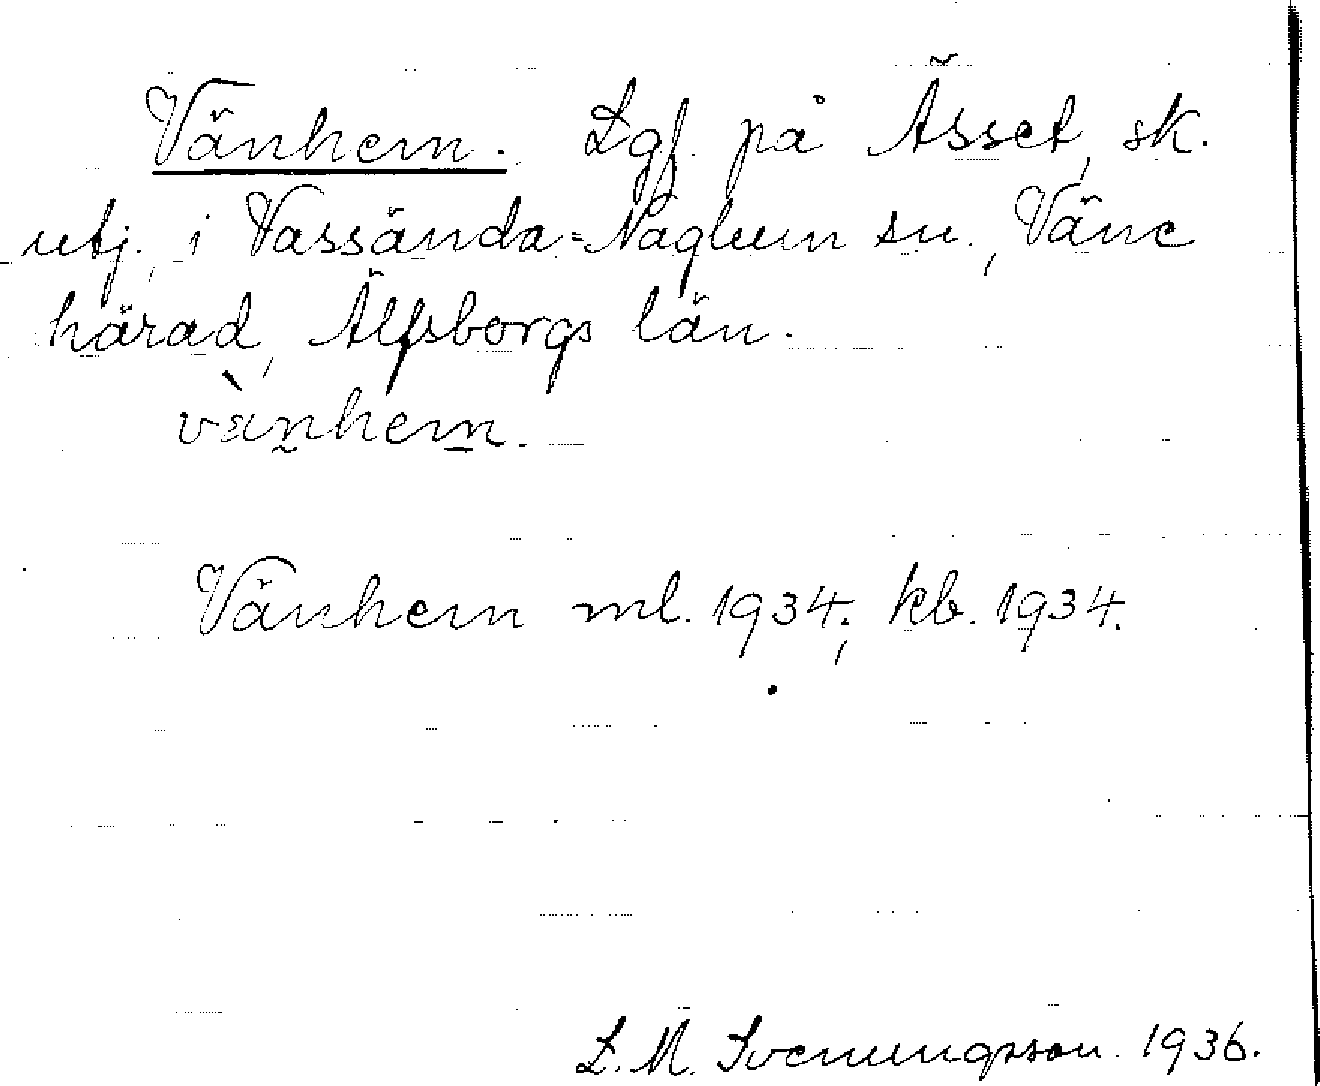 Vänhem. Lgf. på Ässet, sk.
utj., i Vassända-Naglum sn., Väne
härad, Älfsborgs län.
vànhem.
Vänhem ml. 1934; kb. 1934.
L. M. Svenungsson. 1936.